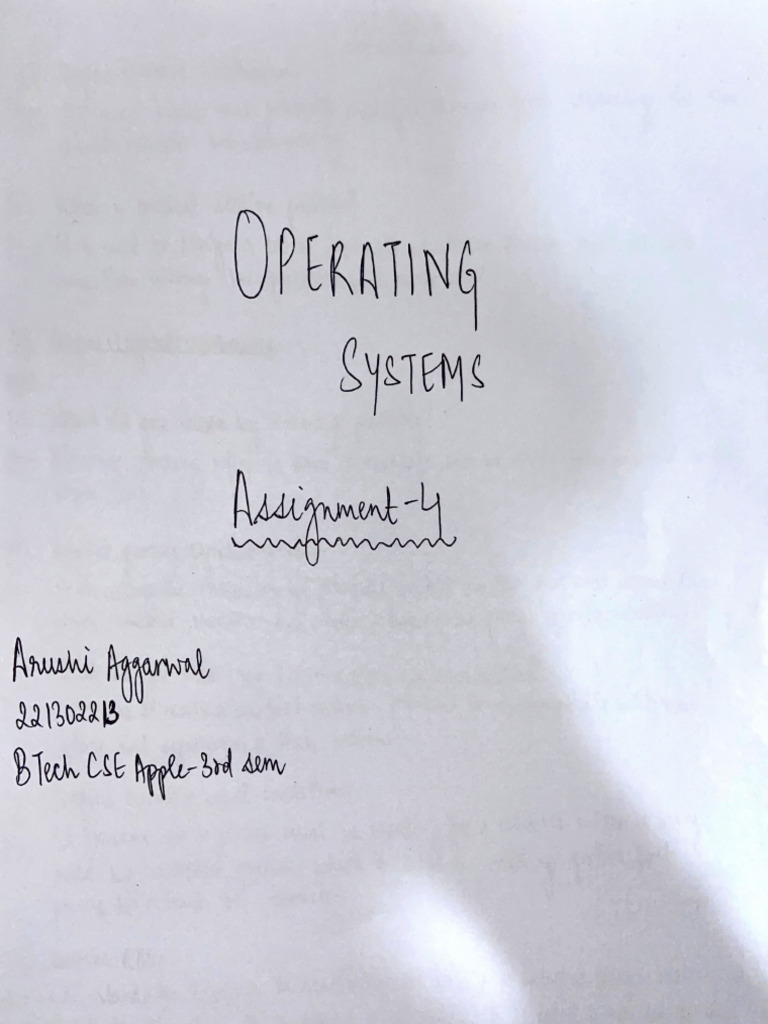 OPERATING
SYSTEMS
Assignment-4
Arushi Aggarwal
221302213
BTech CSE Apple-3rd sem